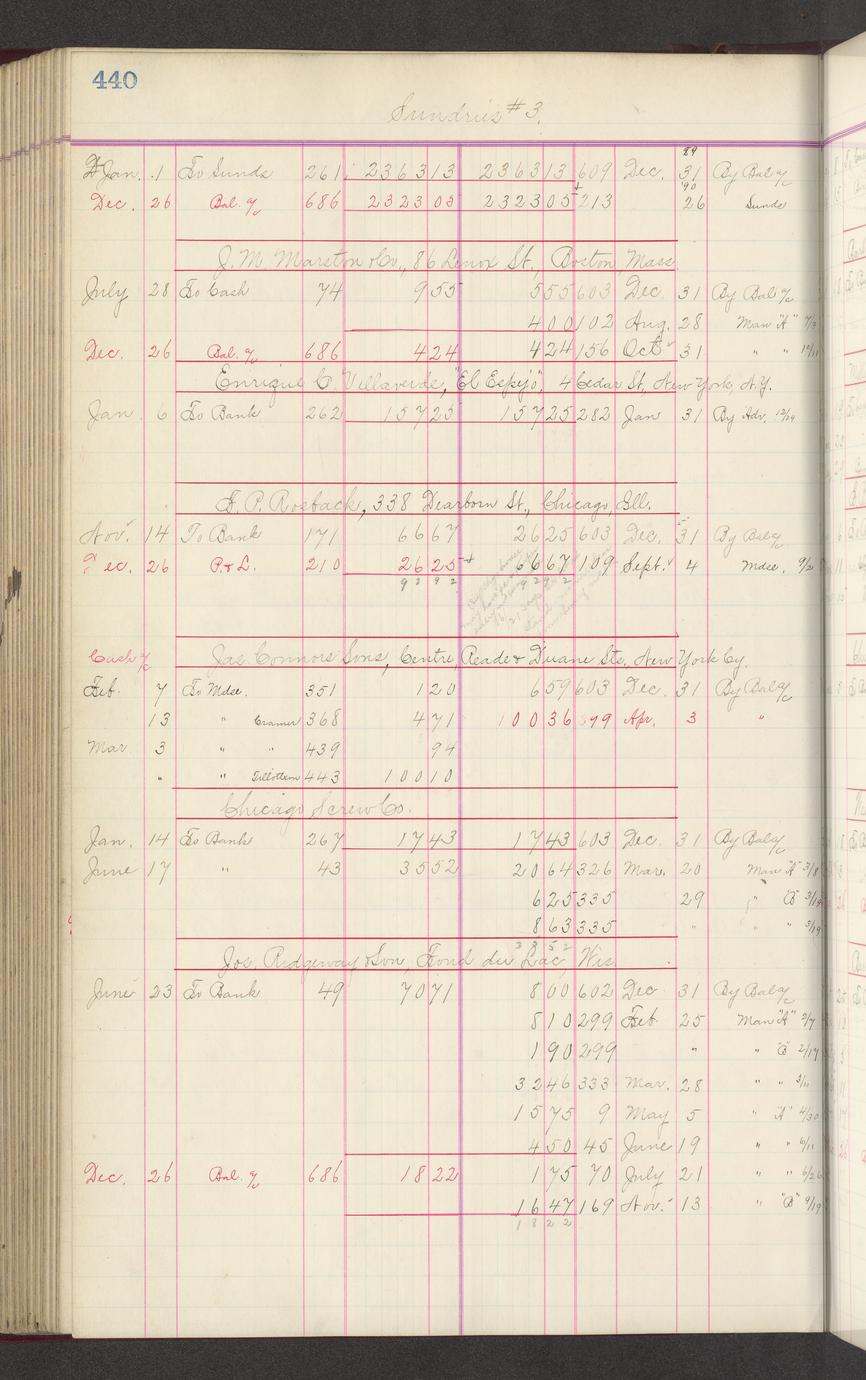 440
Sundries #3.
89
Jan. 1 To Sunds 261 236313 236313 609 Dec. 31 By Bal a/c
'90
Dec. 26 Bal. a/c 686 232305 232305 213 26 Sunds
J. M. Marston & Co., 86 Lenox St., Boston, Mass
July 28 To Cash 74 955 555 603 Dec 31 By Bal a/c
400 102 Aug. 28 Man "A"
Dec. 26 Bal. a/c 686 424 424 156 Oct. 31 " "
Enrique C. Villaverde, "El Espejo", 4 Cedar St, New York, N.Y.
Jan 6 To Bank 262 15725 15725 282 Jan 31 By Adv. 12/24
F. P. Rosback, 338 Dearborn St., Chicago, Ill.
Nov. 14 To Bank 171 6667 2625 603 Dec. 31 By Bal a/c
Dec. 26 P. & L. 210 2625 6667 109 Sept. 4 Mdse.
9292 9292
Cash a/c Jas. Connors Sons, Centre, Reade & Duane Sts. New York Cy.
Feb. 7 To Mdse. 351 120 659 603 Dec. 31 By Bal a/c
13 " Cramer 368 471 10036 399 Apr. 3 "
Mar 3 " " 439 94
" " Tillotson 443 10010
Chicago Screw Co.
Jan. 14 To Bank 267 1743 1743 603 Dec. 31 By Bal a/c
June 17 " 43 3552 2064 326 Mar. 20 Man "A" 3/8
625 335 29 " "B" 3/19
863 335 " " " 3/19
3552
Jos. Ridgeway & Son, Fond du Lac, Wis
June 23 To Bank 49 7071 800 602 Dec 31 By Bal a/c
810 299 Feb. 25 Man "A" 2/7
190 299 " " "B" 2/17
3246 333 Mar. 28 " " 3/11
1575 9 May 5 " "A" 4/30
450 45 June 19 " " 6/11
Dec. 26 Bal. a/c 686 1822 175 70 July 21 " " 6/26
1647 169 Nov. 13 " "B" 9/19
1822